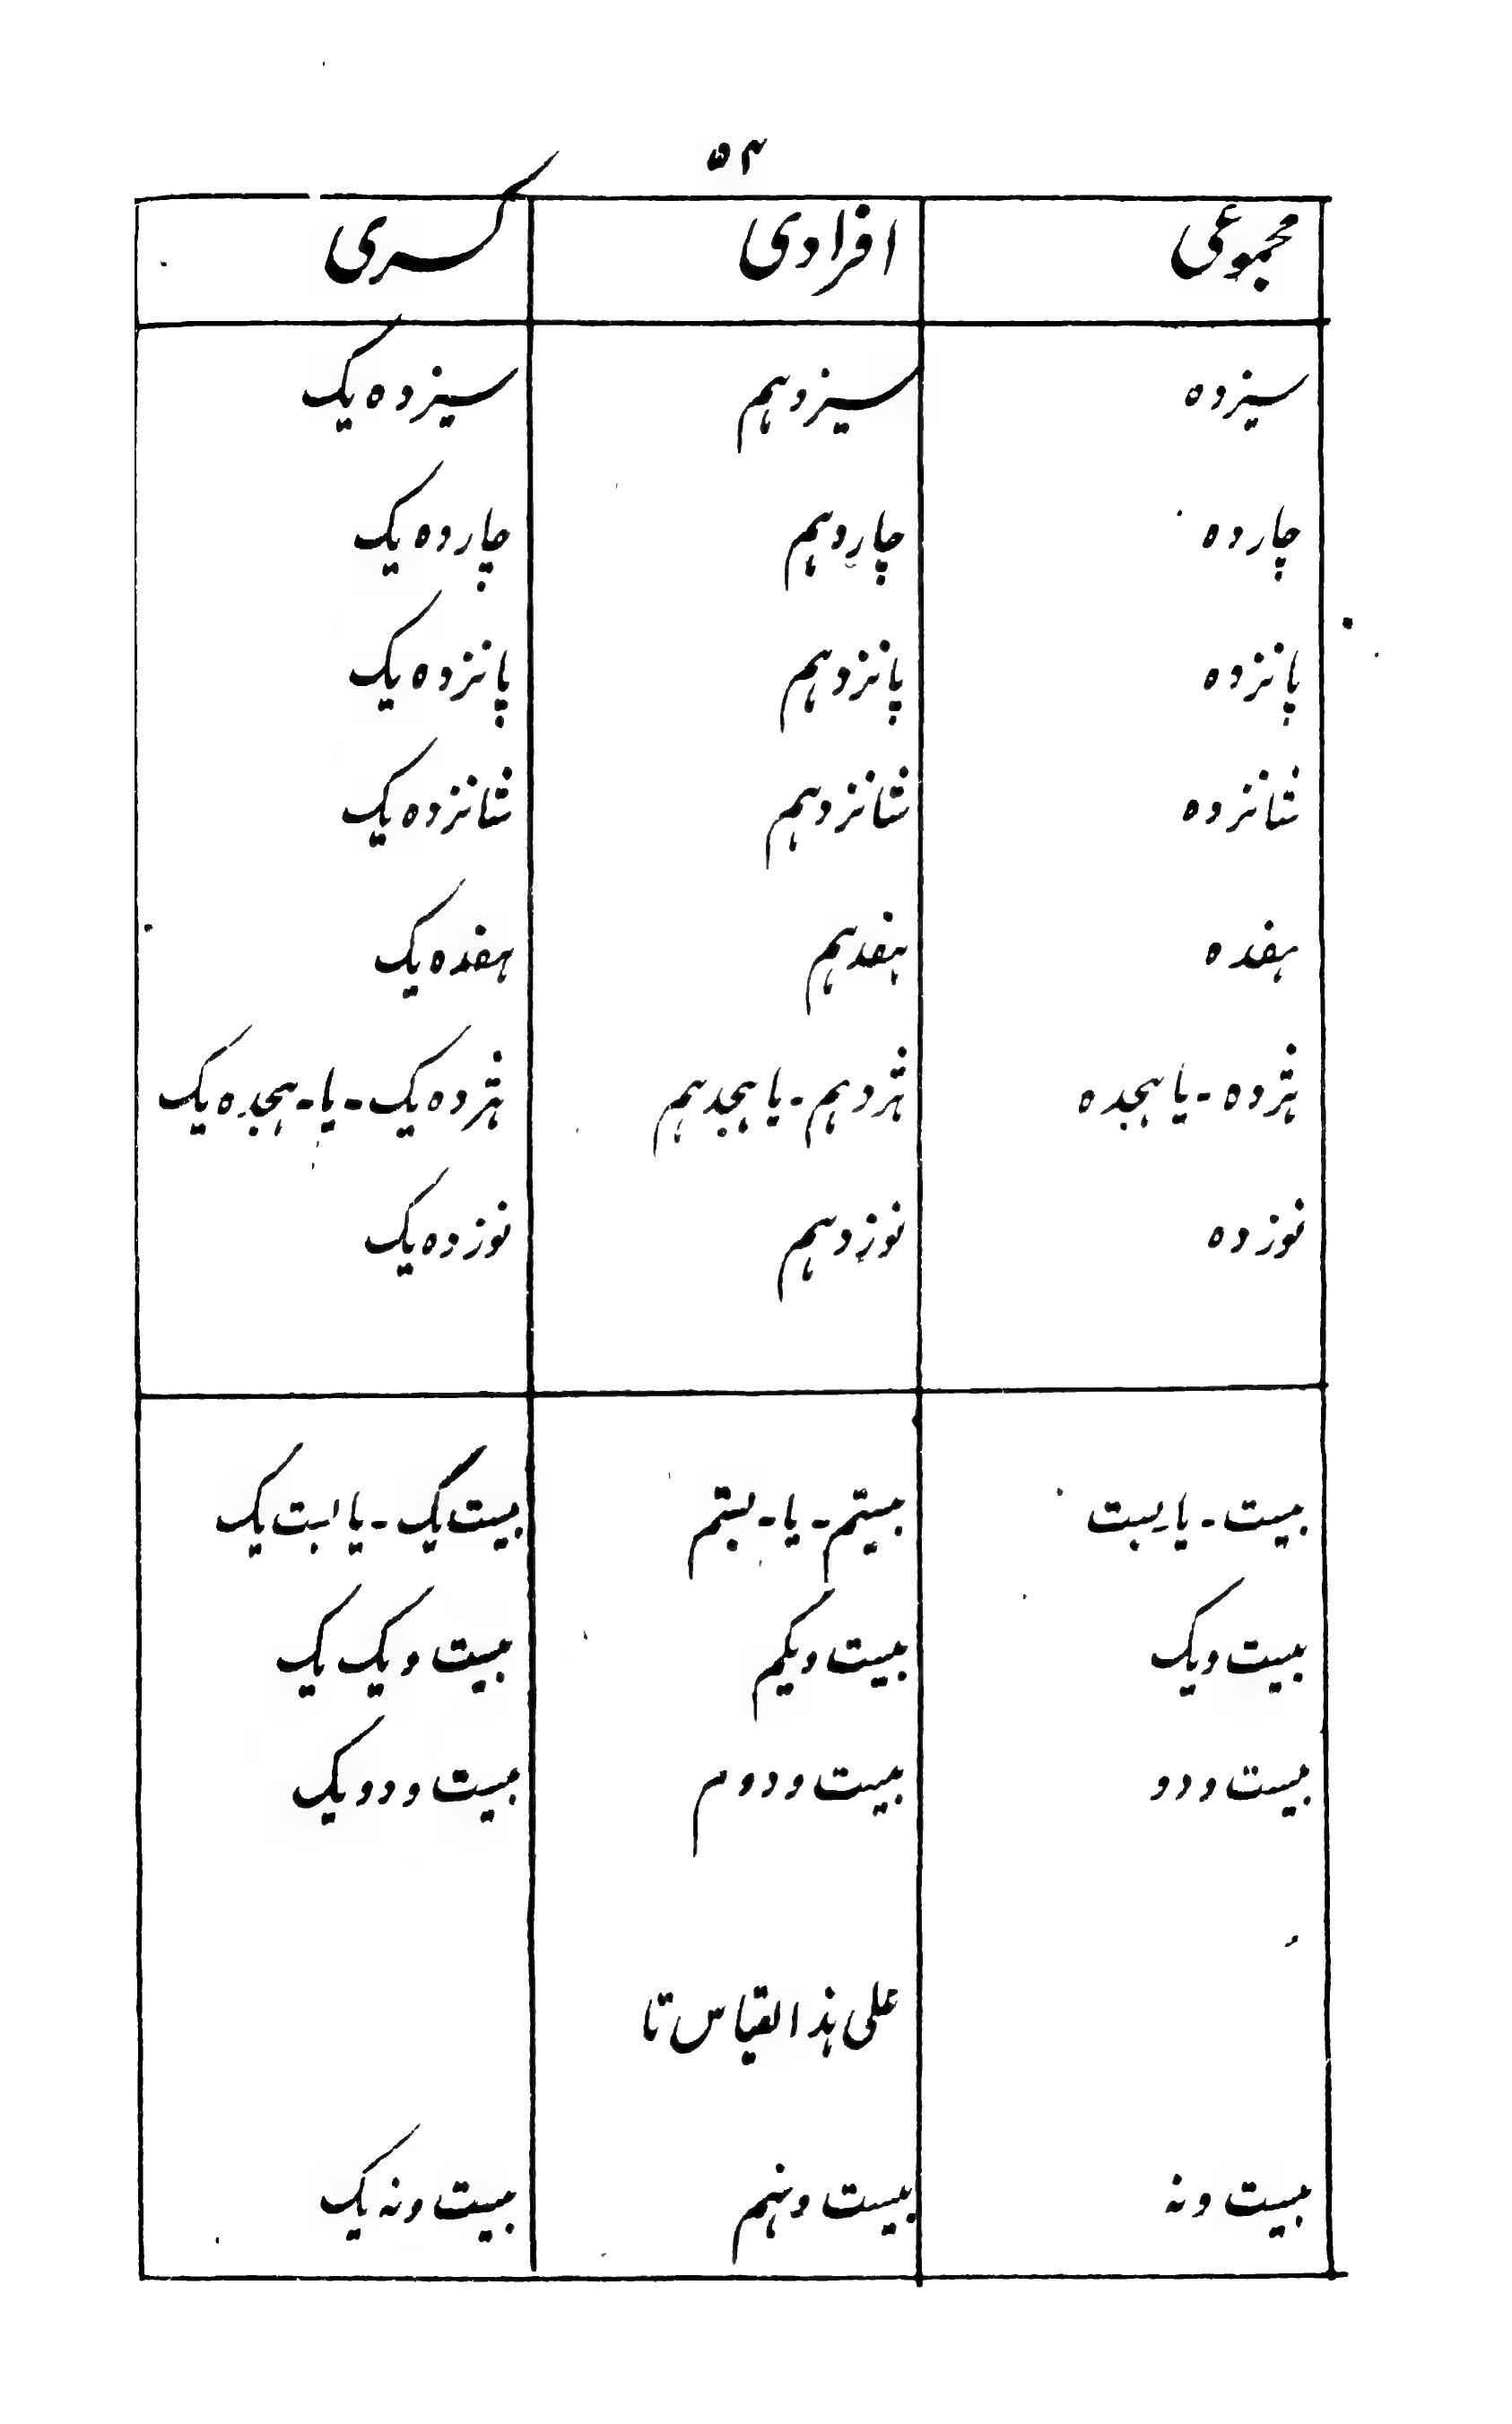 ۵۴
مجموعی افرادی کسری
سیزده سیزدہم سیزده یک
چارده چاردہم چارده یک
پانزده پانزدہم پانزده یک
شانزده شانزدہم شانزده یک
ہفده ہفدہم ہفده یک
ہژده - یا ہجده ہژدہم - یا ہجدہم ہژده یک - یا - ہجده یک
نوزده نوزدہم نوزده یک
بیست - یا بست بیستم - یا - بستم بیست یک - یا بست یک
بیست و یک بیست و یکم بیست و یک یک
بیست و دو بیست و دوم بیست و دو یک
علی ہذا القیاس تا
بیست و نہ بیست و نہم بیست و نہ یک